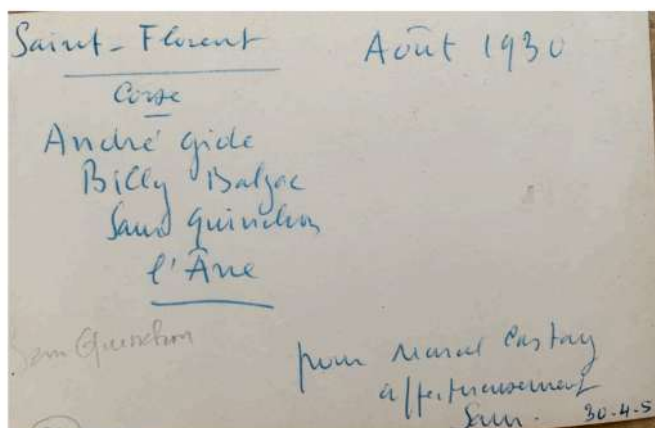 Saint-Florent
Août 1930
Corse
André Gide
Billy Balzac
Sam Guinchon
l'Âne
Sam Guinchon
pour Marcel
affectueusement
Sam.
30-4-5